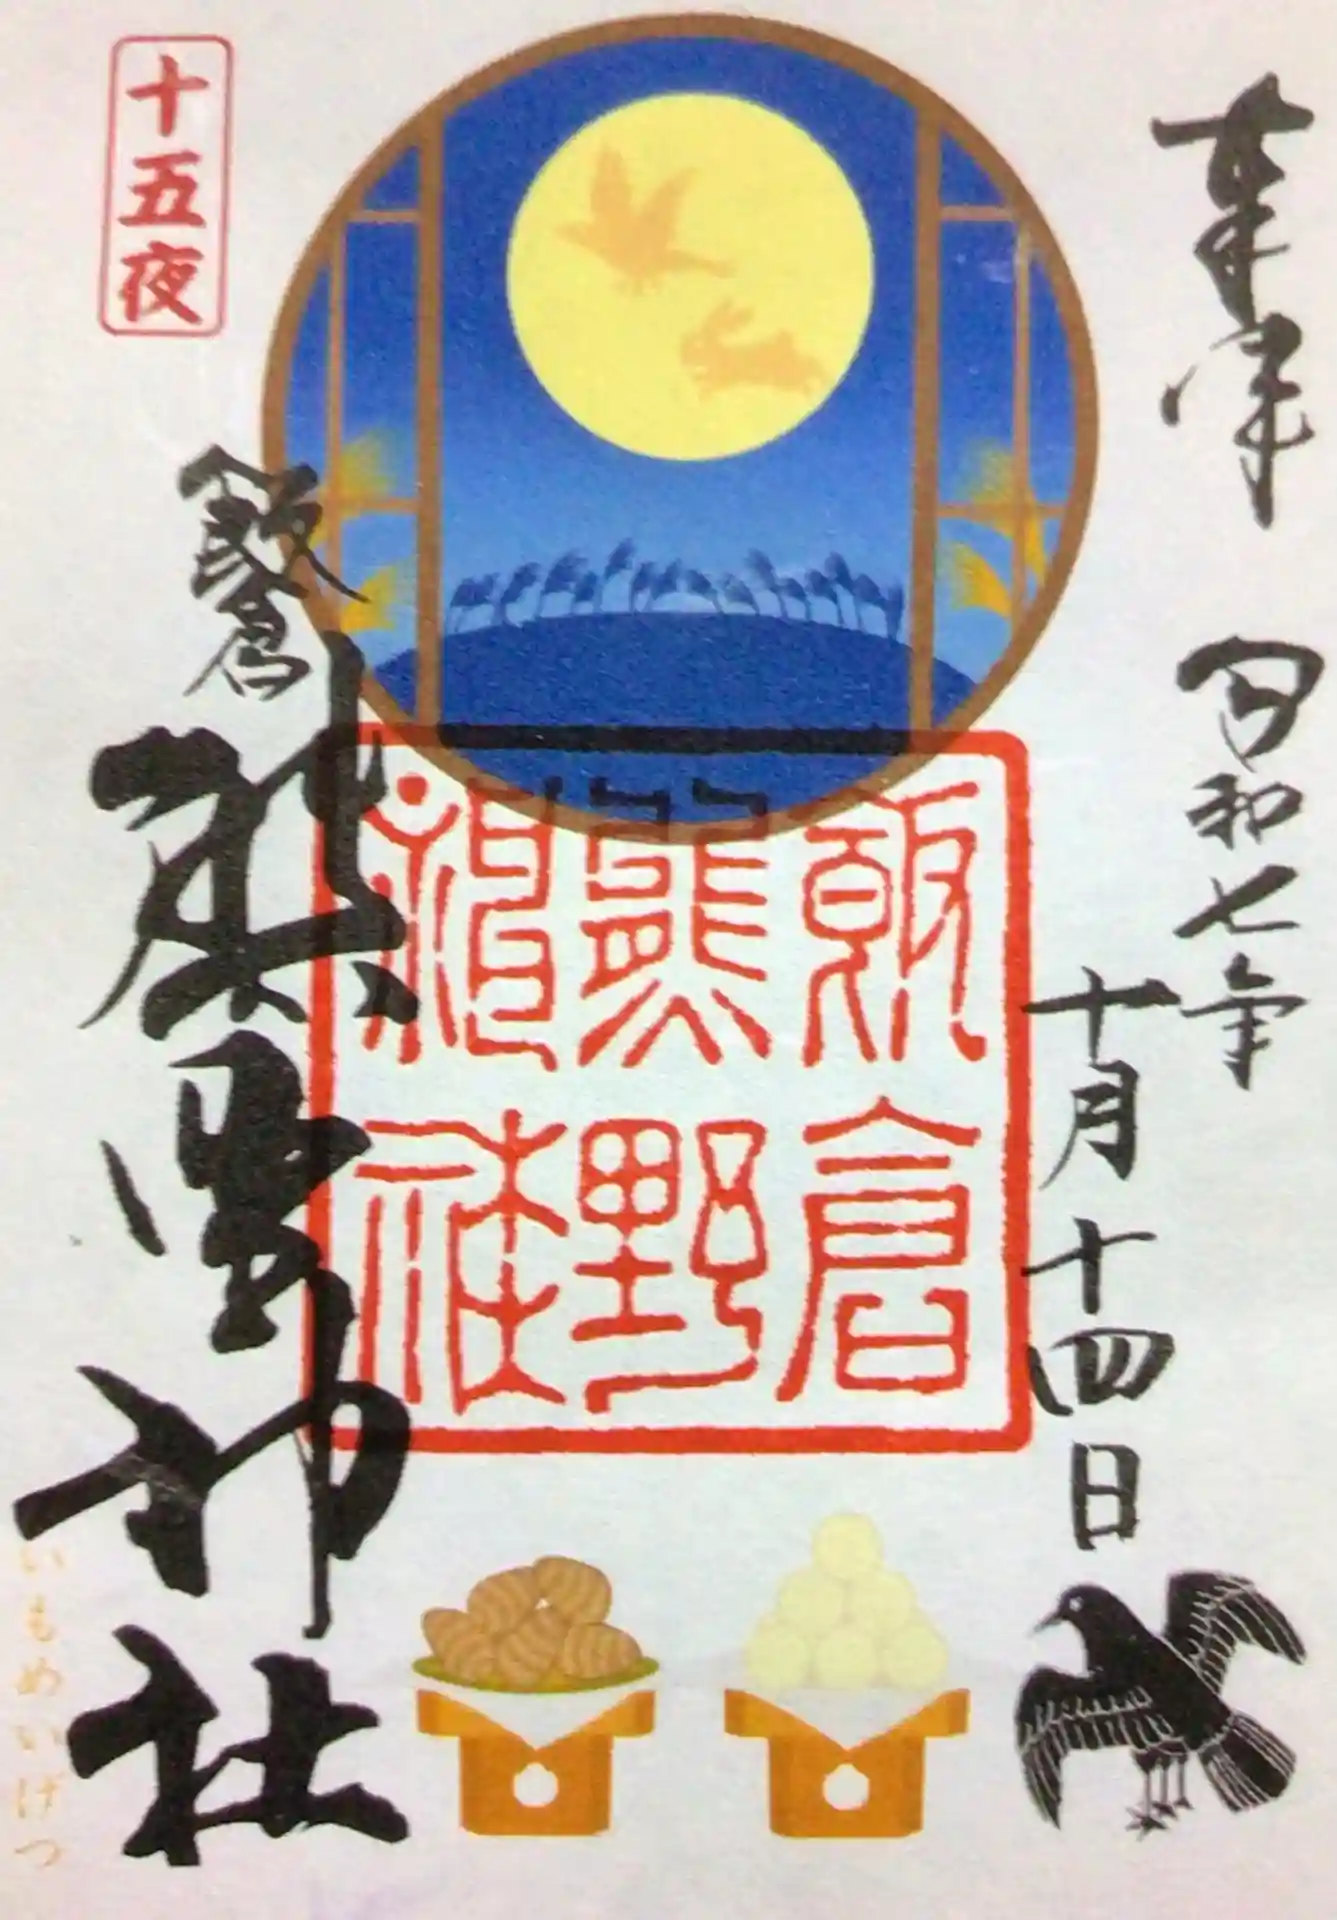 奉拝
令和七年
十月十四日
飯倉
熊野
神社
十五夜
飯倉
熊野神社
いもめいげつ